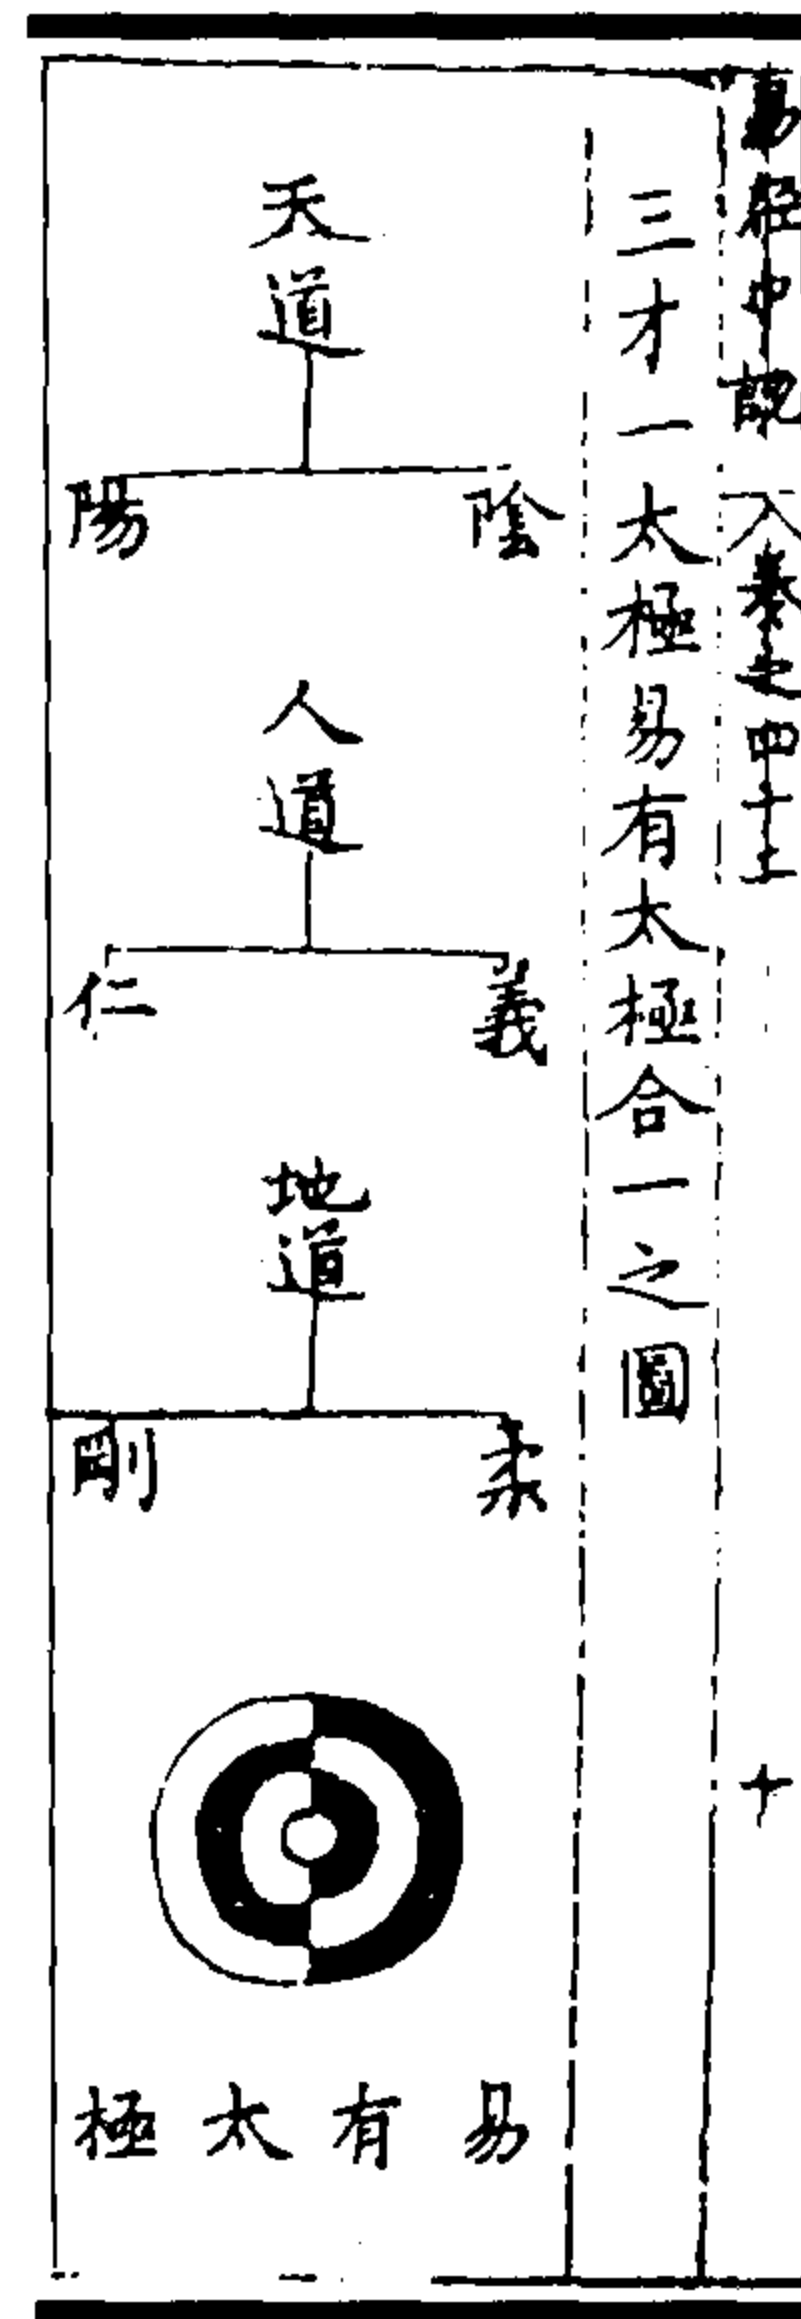 易經中說 卷之四十上
十
三才一太極易有太極合一之圖
天道
陰 陽
人道
義 仁
地道
柔 剛
易有太極